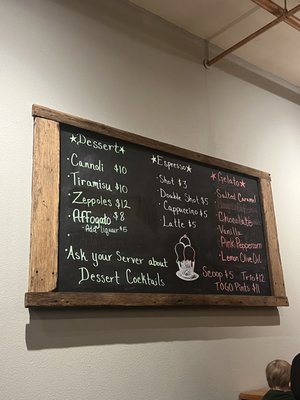 ★Dessert★
· Cannoli $10
· Tiramisu $10
· Zeppoles $12
· Affogato $8
· Add liquor $5
Ask your Server about
Dessert Cocktails
★Espresso★
· Shot $3
· Double Shot $5
· Cappuccino $5
· Latte $5
★Gelato★
· Salted Caramel
· Chocolate
· Vanilla
· Pink Peppercorn
· Lemon Olive Oil
Scoop $5 Trio $12
TOGO Pints $11